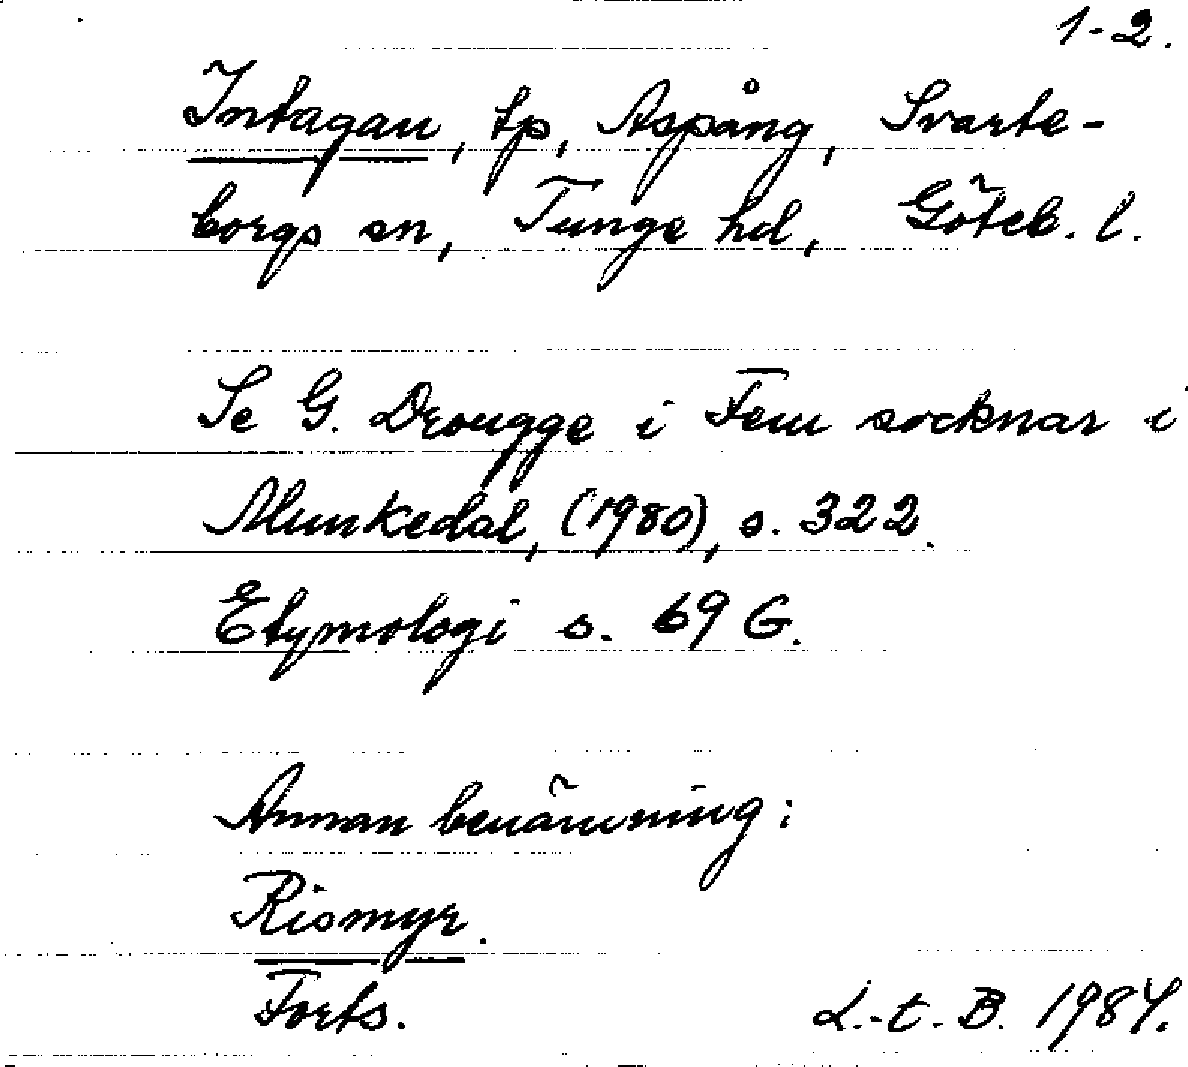 1-2.
Intagan, tp, Aspång, Svarte-
borgs sn, Tunge hd, Göteb. l.
Se G. Drougge i Fem socknar i
Munkedal, (1980), s. 322.
Etymologi s. 69 G.
Annan benämning:
Rismyr.
Forts. L.-t. B. 1984.